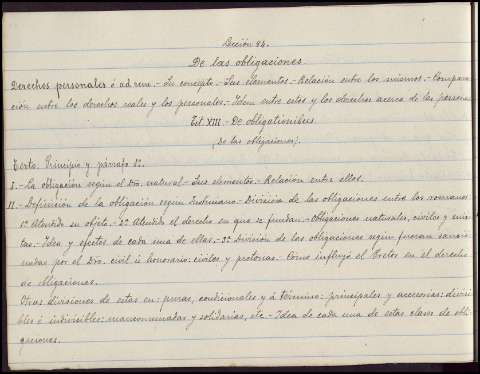 Lección 84.
De las obligaciones.
Derechos personales ó ad rem.- Su concepto.- Sus elementos.- Relación entre los mismos.- Compara-
ción entre los derechos reales y los personales.- Idem entre estos y los derechos acerca de las personas
Tit XIII.- De obligationibus
(De las obligaciones).
Texto: Principio y párrafo 1º.
I.- La obligación según el dro. natural.- Sus elementos.- Relación entre ellos.
II.- Definición de la obligación según Justiniano.- División de las obligaciones entre los romanos
1º Atendido su objeto.- 2º Atendido el derecho en que se fundan.- Obligaciones naturales, civiles y mix-
tas.- Idea y efectos de cada una de ellas.- 3º División de las obligaciones según fueran sancio-
nadas por el Dro. civil ú honorario: civiles y pretorias.- Cómo influyó el Pretor en el derecho
de obligaciones.
Otras divisiones de estas en: puras, condicionales y á término: principales y accesorias: divisi-
bles é indivisibles: mancomunadas y solidarias, etc.- Idea de cada una de estas clases de obli-
gaciones.